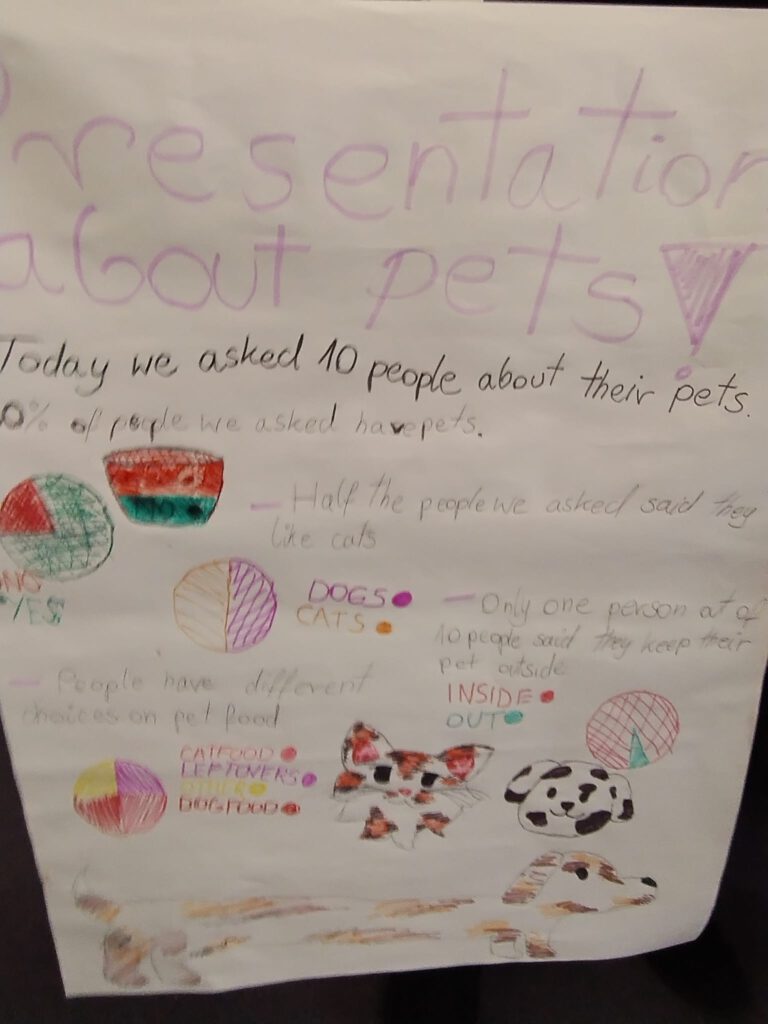 Presentation
about pets!
Today we asked 10 people about their pets.
0% of people we asked have pets.
- Half the people we asked said they
like cats
NO
YES
DOGS
CATS
- Only one person out of
10 people said they keep their
pet outside
INSIDE
OUT
- People have different
choices on pet food
CATFOOD
LEFTOVERS
OTHER
DOGFOOD